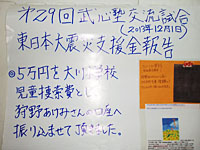 第29回武心塾交流試合
(2013年12月1日)
東日本大震火支援金報告
◎5万円を大川小学校
児童捜索費として
狩野あけみさんの口座へ
振り込ませて頂ました。